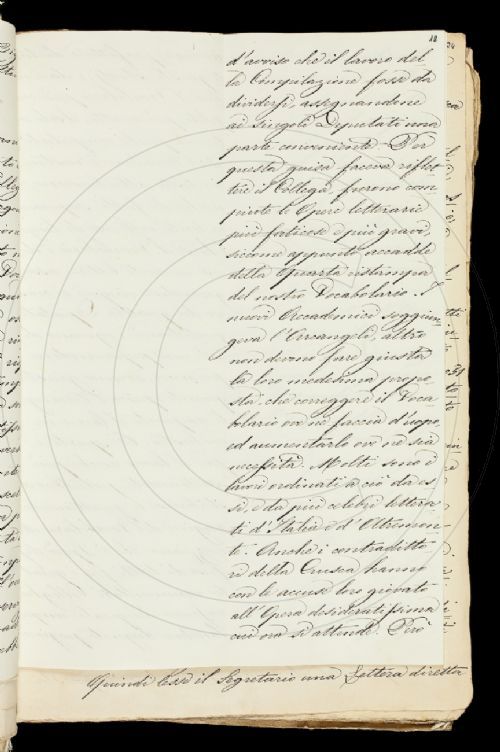 18
d'avviso che il lavoro del
la Compilazione fosse da
dividersi, assegnandone
ai singoli Deputati una
parte conveniente. Per
questa guisa faceva riflet
tere il Collega, furono com
piute le Opere letterarie
più faticose e più gravi,
siccome appunto accadde
della Quarta ristampa
del nostro Vocabolario. I
nuovi Accademici soggiun
geva l'Arcangeli, altro
non devono fare giusta
la loro medesima propo
sta: che correggere il Voca
bolario ove ne faccia d'uopo,
ed aumentarlo ove ne sia
necessità. Molti sono i
lavori ordinati a ciò da es
si, e da più celebri lettera
ti d'Italia e d'Oltremon
te. Anche i contraditto
ri della Crusca hanno
con le accuse loro giovato
all'Opera desideratissima
cui ora si attende. Però
Quindi lesse il Segretario una Lettera diretta